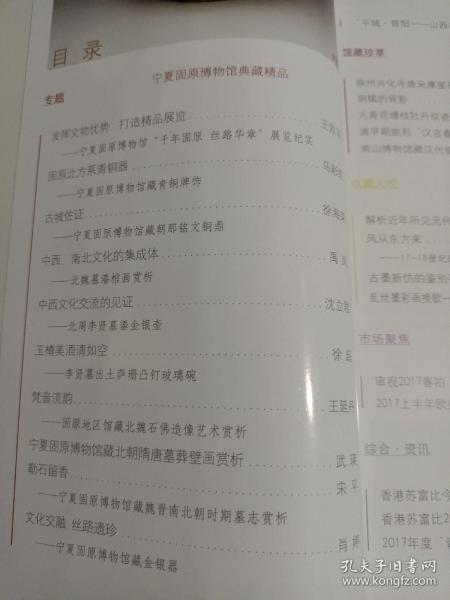 目录
宁夏固原博物馆典藏精品
专题
发挥文物优势 打造精品展览
——宁夏固原博物馆“千年固原 丝路华章”展览纪实
固原北方系青铜器
——宁夏固原博物馆藏青铜牌饰
古城佐证
——宁夏固原博物馆藏朝那铭文铜鼎
中西、南北文化的集成体
——北魏墓漆棺画赏析
中西文化交流的见证 沈立君
——北周李贤墓鎏金银壶
玉樽美酒清如空 徐超
——李贤墓出土萨珊凸钉玻璃碗
梵音流韵 王延丹
——固原地区馆藏北魏石佛造像艺术赏析
宁夏固原博物馆藏北朝隋唐墓葬壁画赏析 武瑛
勒石留香 宋平
——宁夏固原博物馆藏魏晋南北朝时期墓志赏析
文化交融 丝路遗珍 肖婷
——宁夏固原博物馆藏金银器
“平城·晋阳——山西
馆藏珍萃
徐州兴化寺唐宋摩崖
元青花缠枝牡丹纹
清早期款彩“汉宫春
南山博物馆藏汉代
收藏大观
解析近年所见元代
风从东方来
——17-18世纪
古墨新仿的鉴别
乱世墨彩画挽歌
市场聚焦
审视2017春拍
2017上半年欧
综合·资讯
香港苏富比今
香港苏富比2
2017年度“
孔夫子旧书网
www.kongfz.com